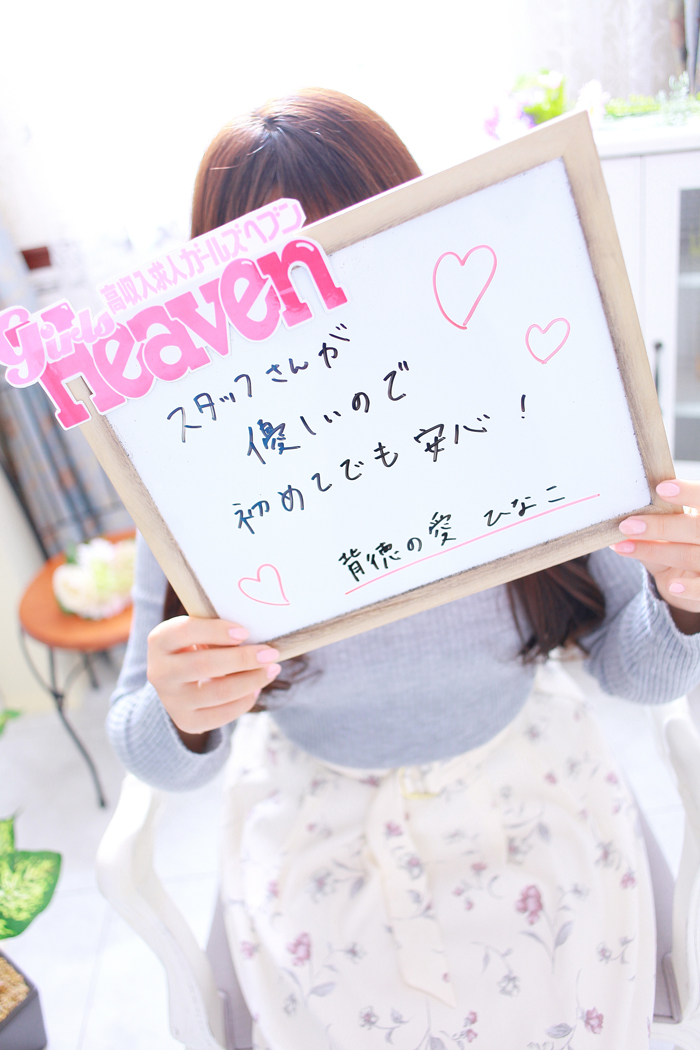 高収入求人ガールズヘブン
girls
Heaven
スタッフさんが
優しいので
初めてでも安心!
背徳の愛 ひなこ